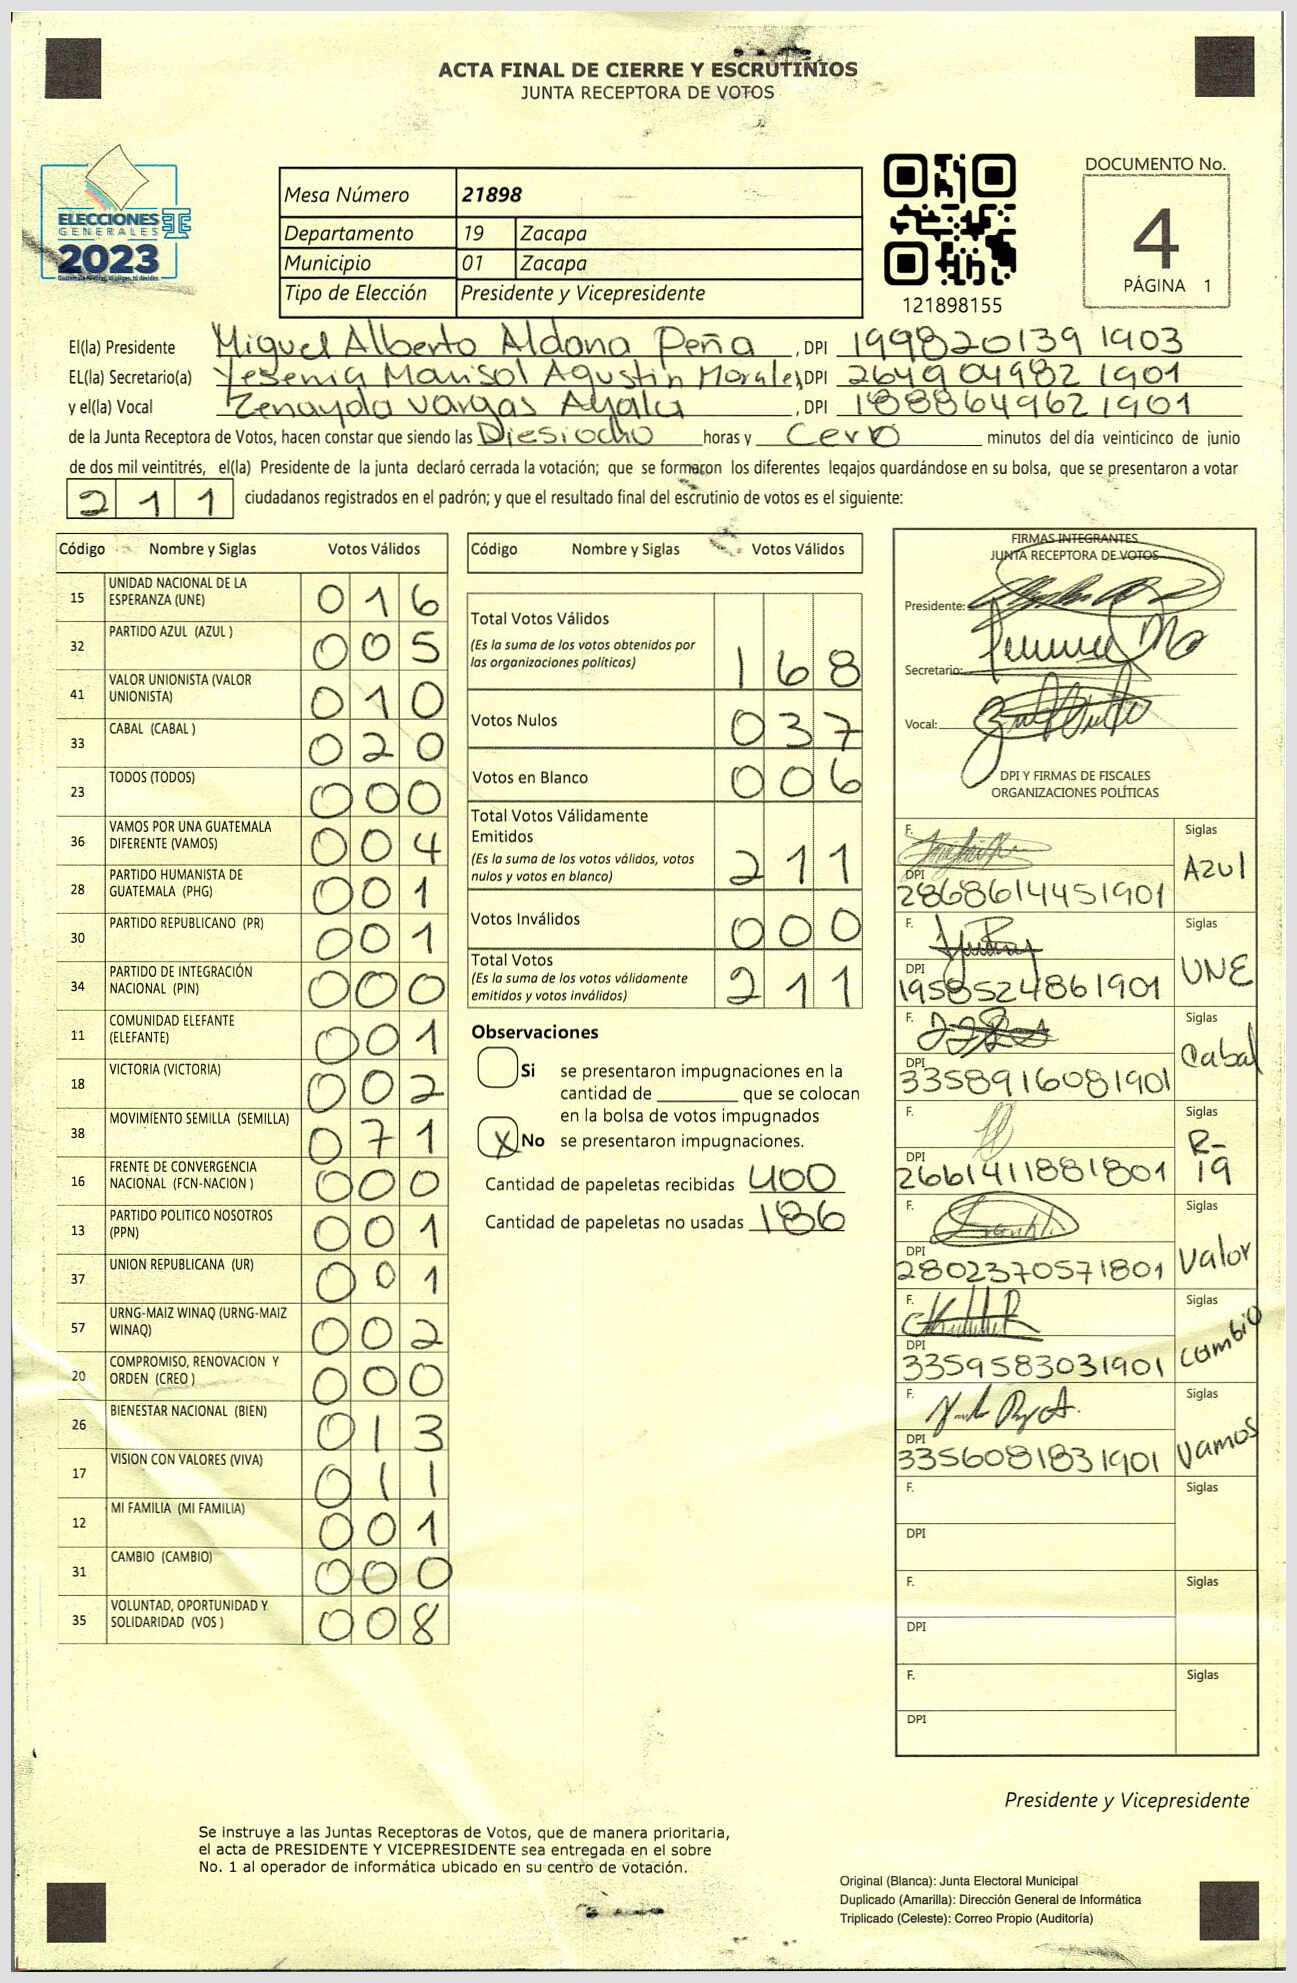 ACTA FINAL DE CIERRE Y ESCRUTINIOS
JUNTA RECEPTORA DE VOTOS
ELECCIONES
GENERALES
2023
Mesa Número 21898
Departamento 19 Zacapa
Municipio 01 Zacapa
Tipo de Elección Presidente y Vicepresidente
121898155
DOCUMENTO No.
4
PÁGINA 1
El(la) Presidente Miguel Alberto Aldana Peña, DPI 199820139 1903
EL(la) Secretario(a) Yesenia Marisol Agustin Morales, DPI 264904982 1901
y el(la) Vocal Zenayda Vargas Ayala, DPI 188864962 1901
de la Junta Receptora de Votos, hacen constar que siendo las Diesiocho horas y Cero minutos del día veinticinco de junio
de dos mil veintitrés, el(la) Presidente de la junta declaró cerrada la votación; que se formaron los diferentes legajos guardándose en su bolsa, que se presentaron a votar
211 ciudadanos registrados en el padrón; y que el resultado final del escrutinio de votos es el siguiente:
Código Nombre y Siglas Votos Válidos
15 UNIDAD NACIONAL DE LA ESPERANZA (UNE) 016
32 PARTIDO AZUL (AZUL ) 005
41 VALOR UNIONISTA (VALOR UNIONISTA) 010
33 CABAL (CABAL ) 020
23 TODOS (TODOS) 000
36 VAMOS POR UNA GUATEMALA DIFERENTE (VAMOS) 004
28 PARTIDO HUMANISTA DE GUATEMALA (PHG) 001
30 PARTIDO REPUBLICANO (PR) 001
34 PARTIDO DE INTEGRACIÓN NACIONAL (PIN) 000
11 COMUNIDAD ELEFANTE (ELEFANTE) 001
18 VICTORIA (VICTORIA) 002
38 MOVIMIENTO SEMILLA (SEMILLA) 071
16 FRENTE DE CONVERGENCIA NACIONAL (FCN-NACION ) 000
13 PARTIDO POLITICO NOSOTROS (PPN) 001
37 UNION REPUBLICANA (UR) 001
57 URNG-MAIZ WINAQ (URNG-MAIZ WINAQ) 002
20 COMPROMISO, RENOVACION Y ORDEN (CREO ) 000
26 BIENESTAR NACIONAL (BIEN) 013
17 VISION CON VALORES (VIVA) 011
12 MI FAMILIA (MI FAMILIA) 001
31 CAMBIO (CAMBIO) 000
35 VOLUNTAD, OPORTUNIDAD Y SOLIDARIDAD (VOS ) 008
Código Nombre y Siglas Votos Válidos
Total Votos Válidos 168
(Es la suma de los votos obtenidos por
las organizaciones políticas)
Votos Nulos 037
Votos en Blanco 006
Total Votos Válidamente
Emitidos 211
(Es la suma de los votos válidos, votos
nulos y votos en blanco)
Votos Inválidos 000
Total Votos 211
(Es la suma de los votos válidamente
emitidos y votos inválidos)
Observaciones
Si se presentaron impugnaciones en la
cantidad de ________ que se colocan
en la bolsa de votos impugnados
X No se presentaron impugnaciones.
Cantidad de papeletas recibidas 400
Cantidad de papeletas no usadas 186
FIRMAS INTEGRANTES
JUNTA RECEPTORA DE VOTOS
Presidente:
Secretario:
Vocal:
DPI Y FIRMAS DE FISCALES
ORGANIZACIONES POLÍTICAS
F. Siglas Azul
DPI 2868614451901
F. Siglas UNE
DPI 1958524861901
F. Siglas Cabal
DPI 3358916081901
F. Siglas R-19
DPI 2661411881801
F. Siglas Valor
DPI 2802370571801
F. Siglas Cambio
DPI 3359583031901
F. Siglas Vamos
DPI 3356081831901
F. Siglas
DPI
F. Siglas
DPI
F. Siglas
DPI
Presidente y Vicepresidente
Se instruye a las Juntas Receptoras de Votos, que de manera prioritaria,
el acta de PRESIDENTE Y VICEPRESIDENTE sea entregada en el sobre
No. 1 al operador de informática ubicado en su centro de votación.
Original (Blanca): Junta Electoral Municipal
Duplicado (Amarilla): Dirección General de Informática
Triplicado (Celeste): Correo Propio (Auditoría)